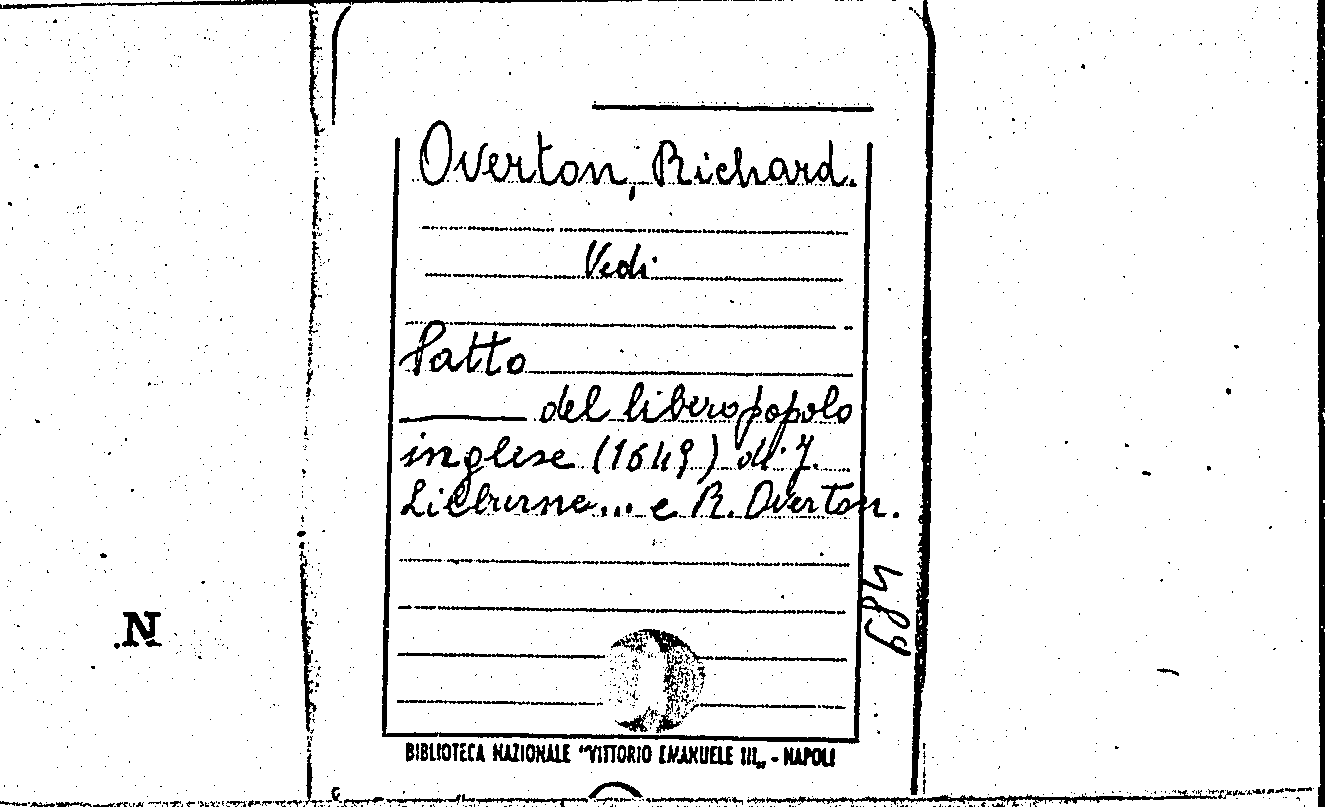 Overton, Richard.
Vedi
Patto
del libero popolo
inglese (1649) di J.
Lilburne... e R. Overton.
489
N
BIBLIOTECA NAZIONALE "VITTORIO EMANUELE III„ - NAPOLI